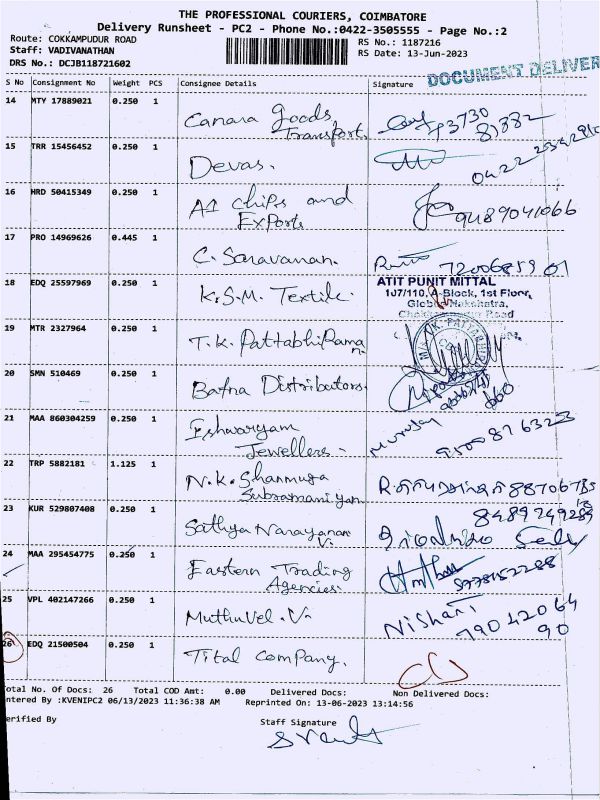 THE PROFESSIONAL COURIERS, COIMBATORE
Delivery Runsheet - PC2 - Phone No.:0422-3505555 - Page No.:2
Route: COKKAMPUDUR ROAD
Staff: VADIVANATHAN
DRS No.: DCJB118721602
RS No.: 1187216
RS Date: 13-Jun-2023
DOCUMENT DELIVER
S No Consignment No Weight PCS Consignee Details Signature
14 MTY 17889021 0.250 1 Canara goods
Transport.
15 TRR 15456452 0.250 1 Devas.
16 HRD 50415349 0.250 1 A1 chips and
Exports 9489041066
17 PRO 14969626 0.445 1 C. Saravanan.
18 EDQ 25597969 0.250 1 K.S.M. Textile.
ATIT PUNIT MITTAL
107/110, A-Block, 1st Floor,
19 MTR 2327964 0.250 1 T.K. PattabhiRama
n.
20 SMN 510469 0.250 1 Bafna Distributors.
21 MAA 860304259 0.250 1 Eshwaryam
Jewellers. Murugan 9500876323
22 TRP 5882181 1.125 1 N.K. Shanmuga
Subramaniyan
23 KUR 529807408 0.250 1 Sathya Narayanan
V. 8489749289
24 MAA 295454775 0.250 1 Eastern Trading
Agencies.
25 VPL 402147266 0.250 1 Muthuvel.V. Nishant
79042064
90
26 EDQ 21500504 0.250 1 Tital company.
otal No. Of Docs: 26 Total COD Amt: 0.00 Delivered Docs: Non Delivered Docs:
ntered By :KVENIPC2 06/13/2023 11:36:38 AM Reprinted On: 13-06-2023 13:14:56
erified By Staff Signature